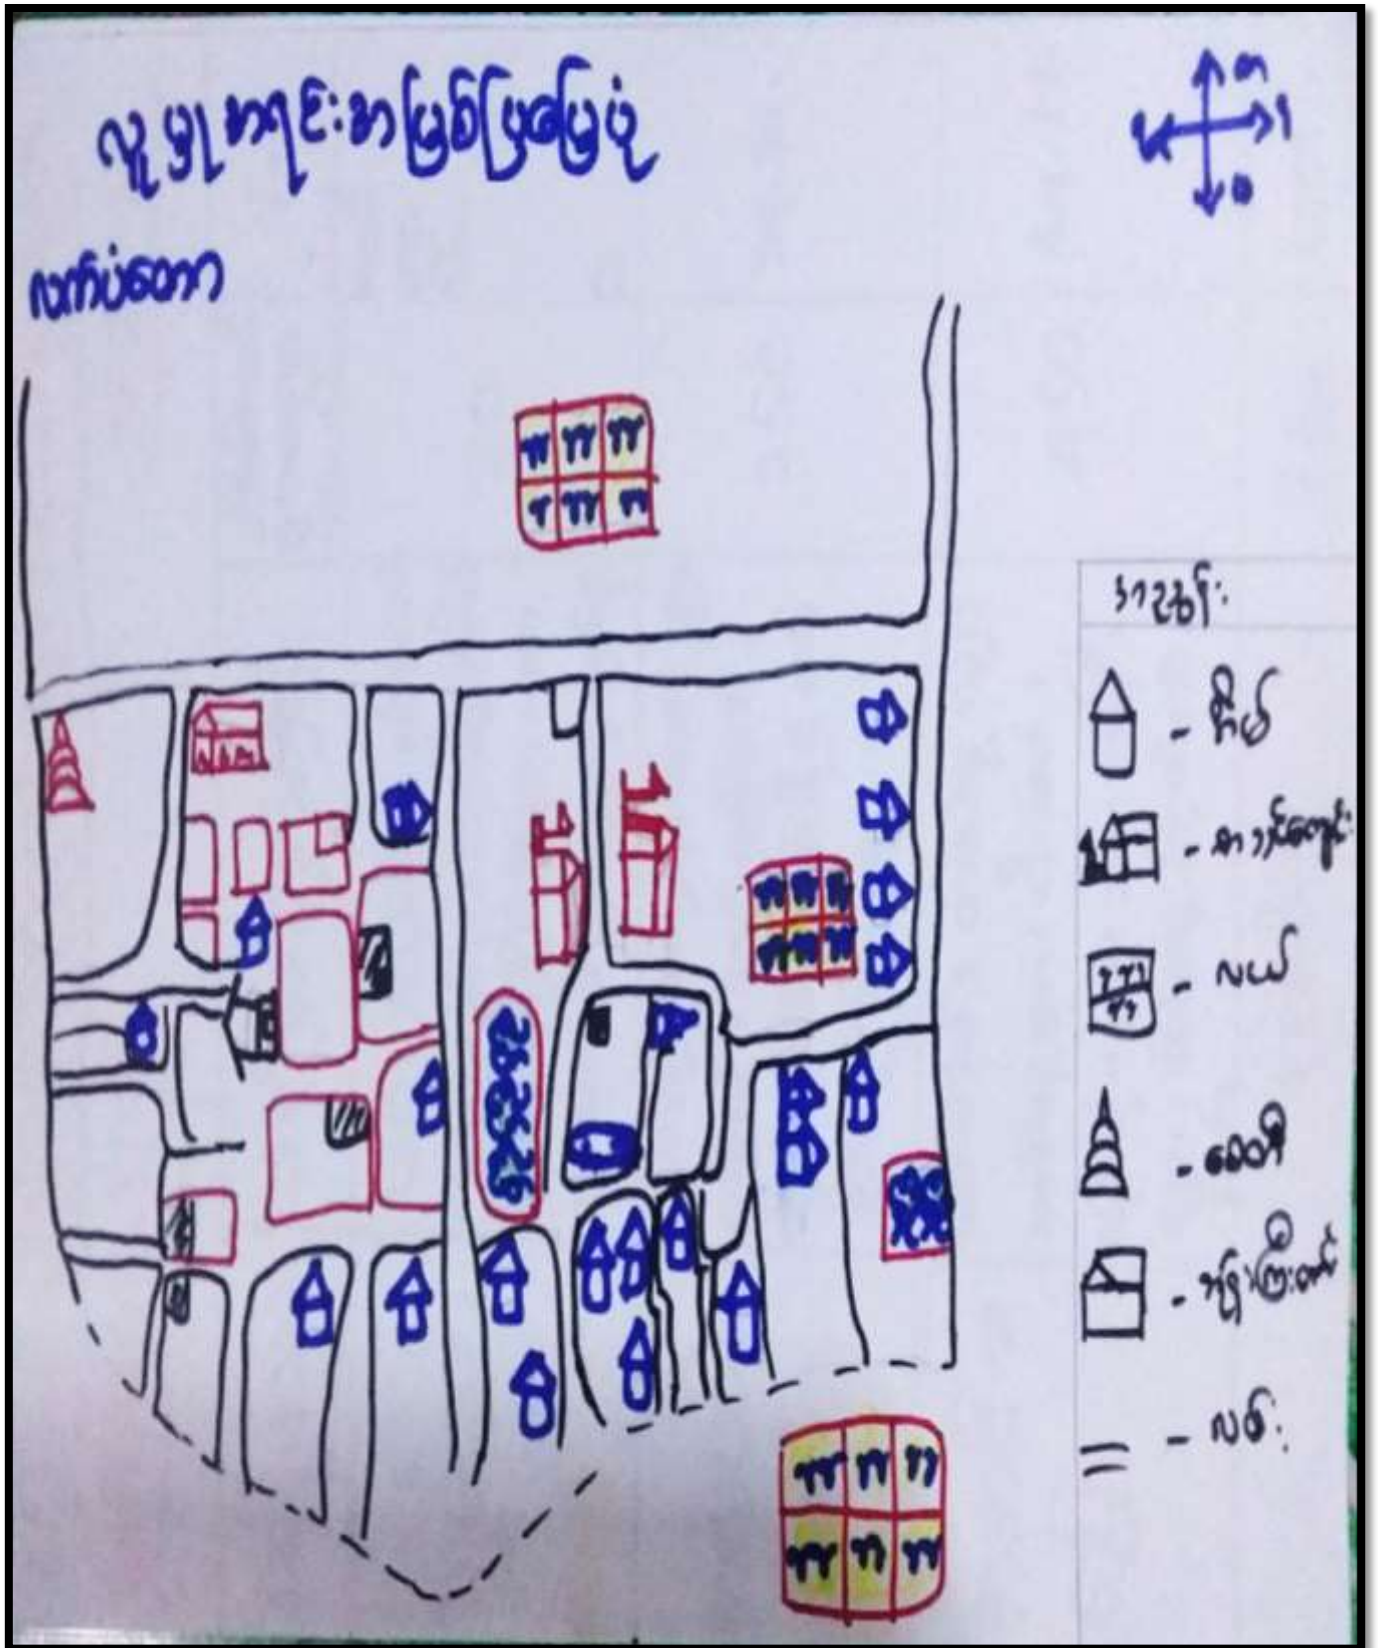 လူမှုအရင်းအမြစ်ပြမြေပုံ
လက်ပံတော
တ
မ
အညွှန်း
- အိမ်
- စာသင်ကျောင်း
- လယ်
- စေတီ
- ဘုန်းကြီးကျောင်း
- လမ်း